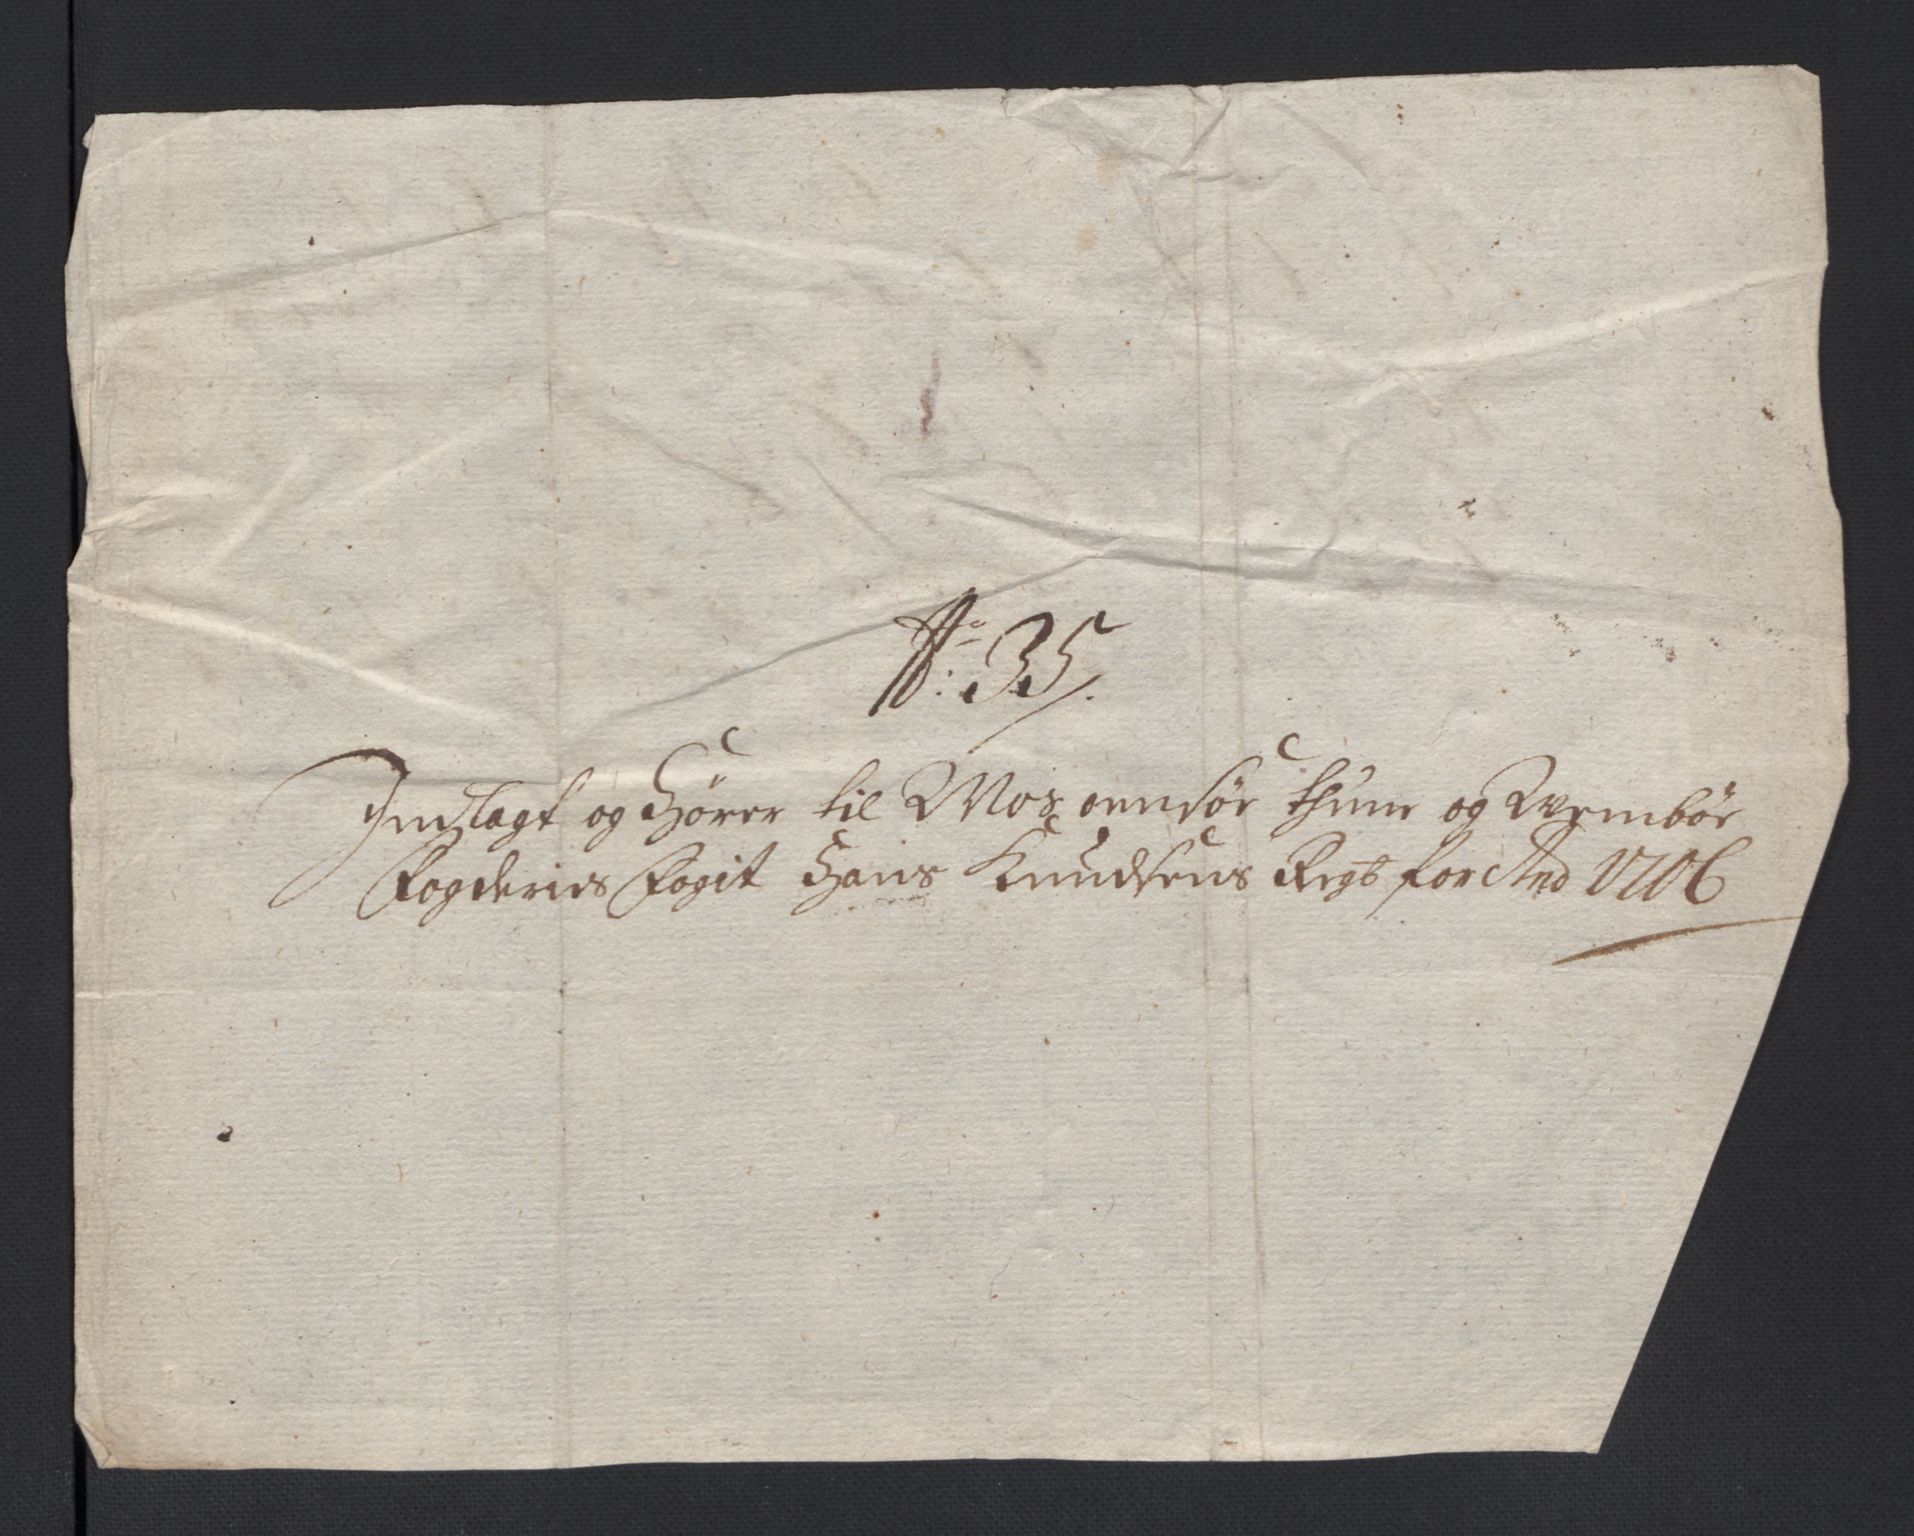 No: 35.
Indlagt og Hörer til Mos onnsöe thune og Wemböe
Fogderies Fogit Hans Knudsens Regb for Ano 1706